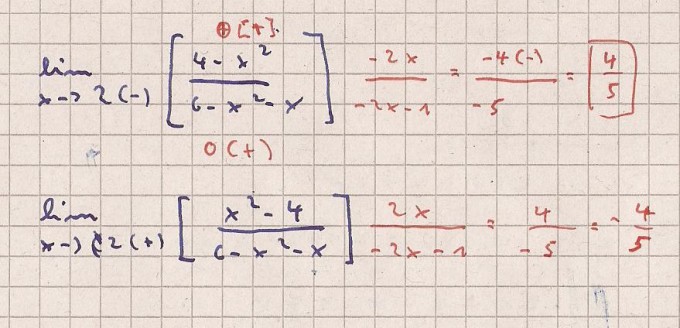 0 [+].
lim x→2(-) [ (4 - x²) / (6 - x² - x) ] (-2x) / (-2x-1) = (-4(-)) / (-5) = 4/5
0(+)
lim x→2(+) [ (x² - 4) / (6 - x² - x) ] (2x) / (-2x-1) = 4 / (-5) = -4/5